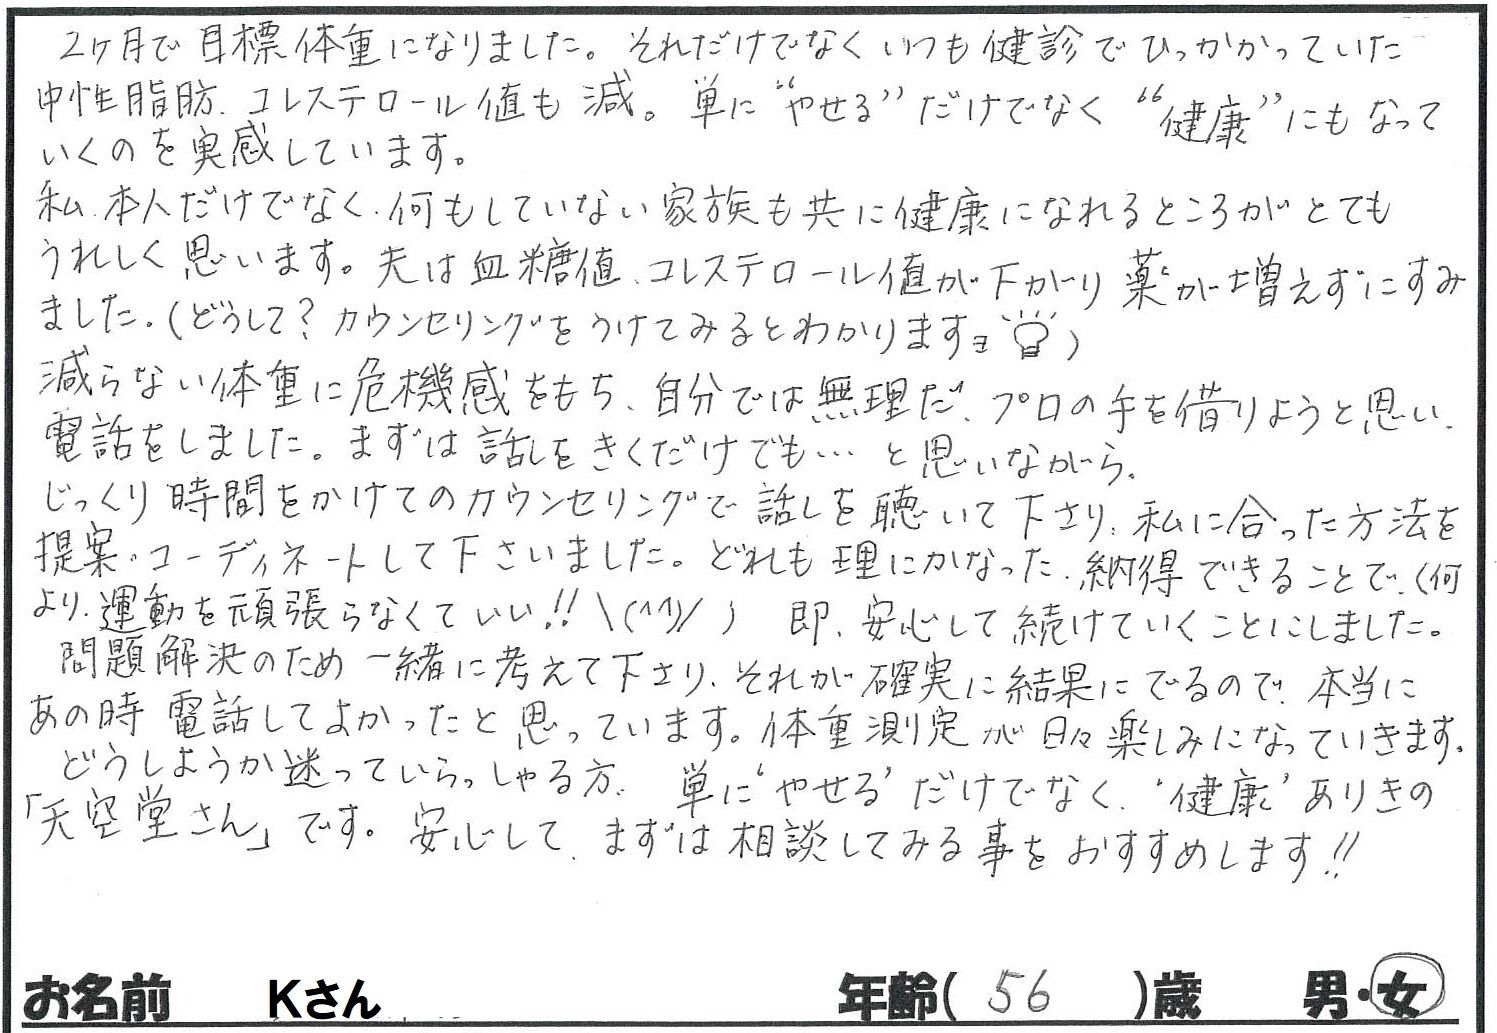 2ヶ月で目標体重になりました。それだけでなくいつも健診でひっかかっていた
中性脂肪、コレステロール値も減。単に“やせる”だけでなく“健康”にもなって
いくのを実感しています。
私、本人だけでなく、何もしていない家族も共に健康になれるところがとても
うれしく思います。夫は血糖値、コレステロール値が下がり薬が増えずにすみ
ました。(どうして?カウンセリングをうけてみるとわかりますョ)
減らない体重に危機感をもち、自分では無理だ、プロの手を借りようと思い、
電話をしました。まずは話しをきくだけでも…と思いながら。
じっくり時間をかけてのカウンセリングで話しを聴いて下さり、私に合った方法を
提案・コーディネートして下さいました。どれも理にかなった、納得できることで、(何
より、運動を頑張らなくていい!!\(^^)/)即、安心して続けていくことにしました。
問題解決のため一緒に考えて下さり、それが確実に結果にでるので、本当に
あの時電話してよかったと思っています。体重測定が日々楽しみになっていきます。
どうしようか迷っていらっしゃる方、単に‘やせる’だけでなく、‘健康’ありきの
「天空堂さん」です。安心して、まずは相談してみる事をおすすめします!!
お名前 Kさん 年齢(56)歳 男・女